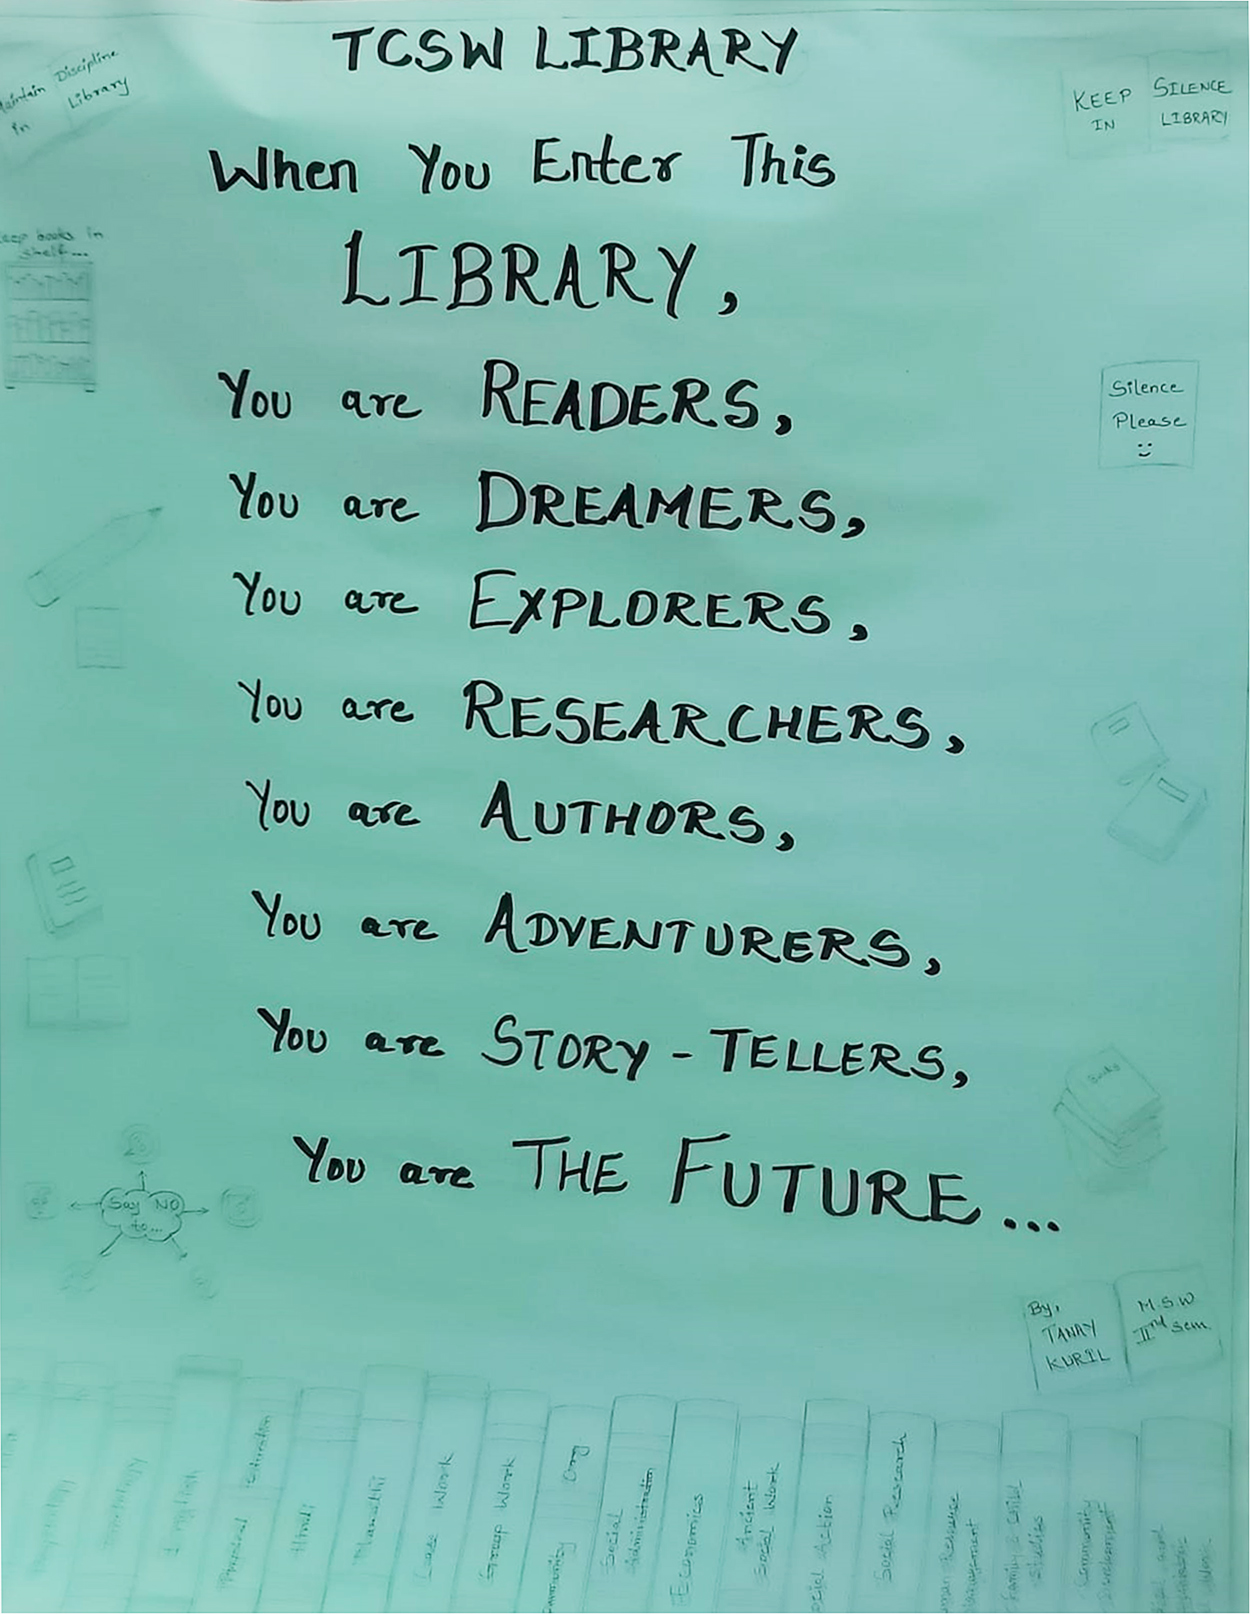 TCSW LIBRARY
Discipline
Library
in
KEEP
IN
SILENCE
LIBRARY
When You Enter This
LIBRARY,
books in
shelf...
You are READERS,
Silence
Please
You are DREAMERS,
You are EXPLORERS,
You are RESEARCHERS,
You are AUTHORS,
You are ADVENTURERS,
You are STORY-TELLERS,
Books
You are THE FUTURE...
Say NO
to...
By,
TANAY
KURIL
M.S.W
IInd Sem.
English
Physical
Education
Hindi
Marathi
Case Work
Group Work
Org
Social
Administration
Economics
Ancient
Social Work
Action
Social Research
Family & Child
Studies
Community
Development
Work